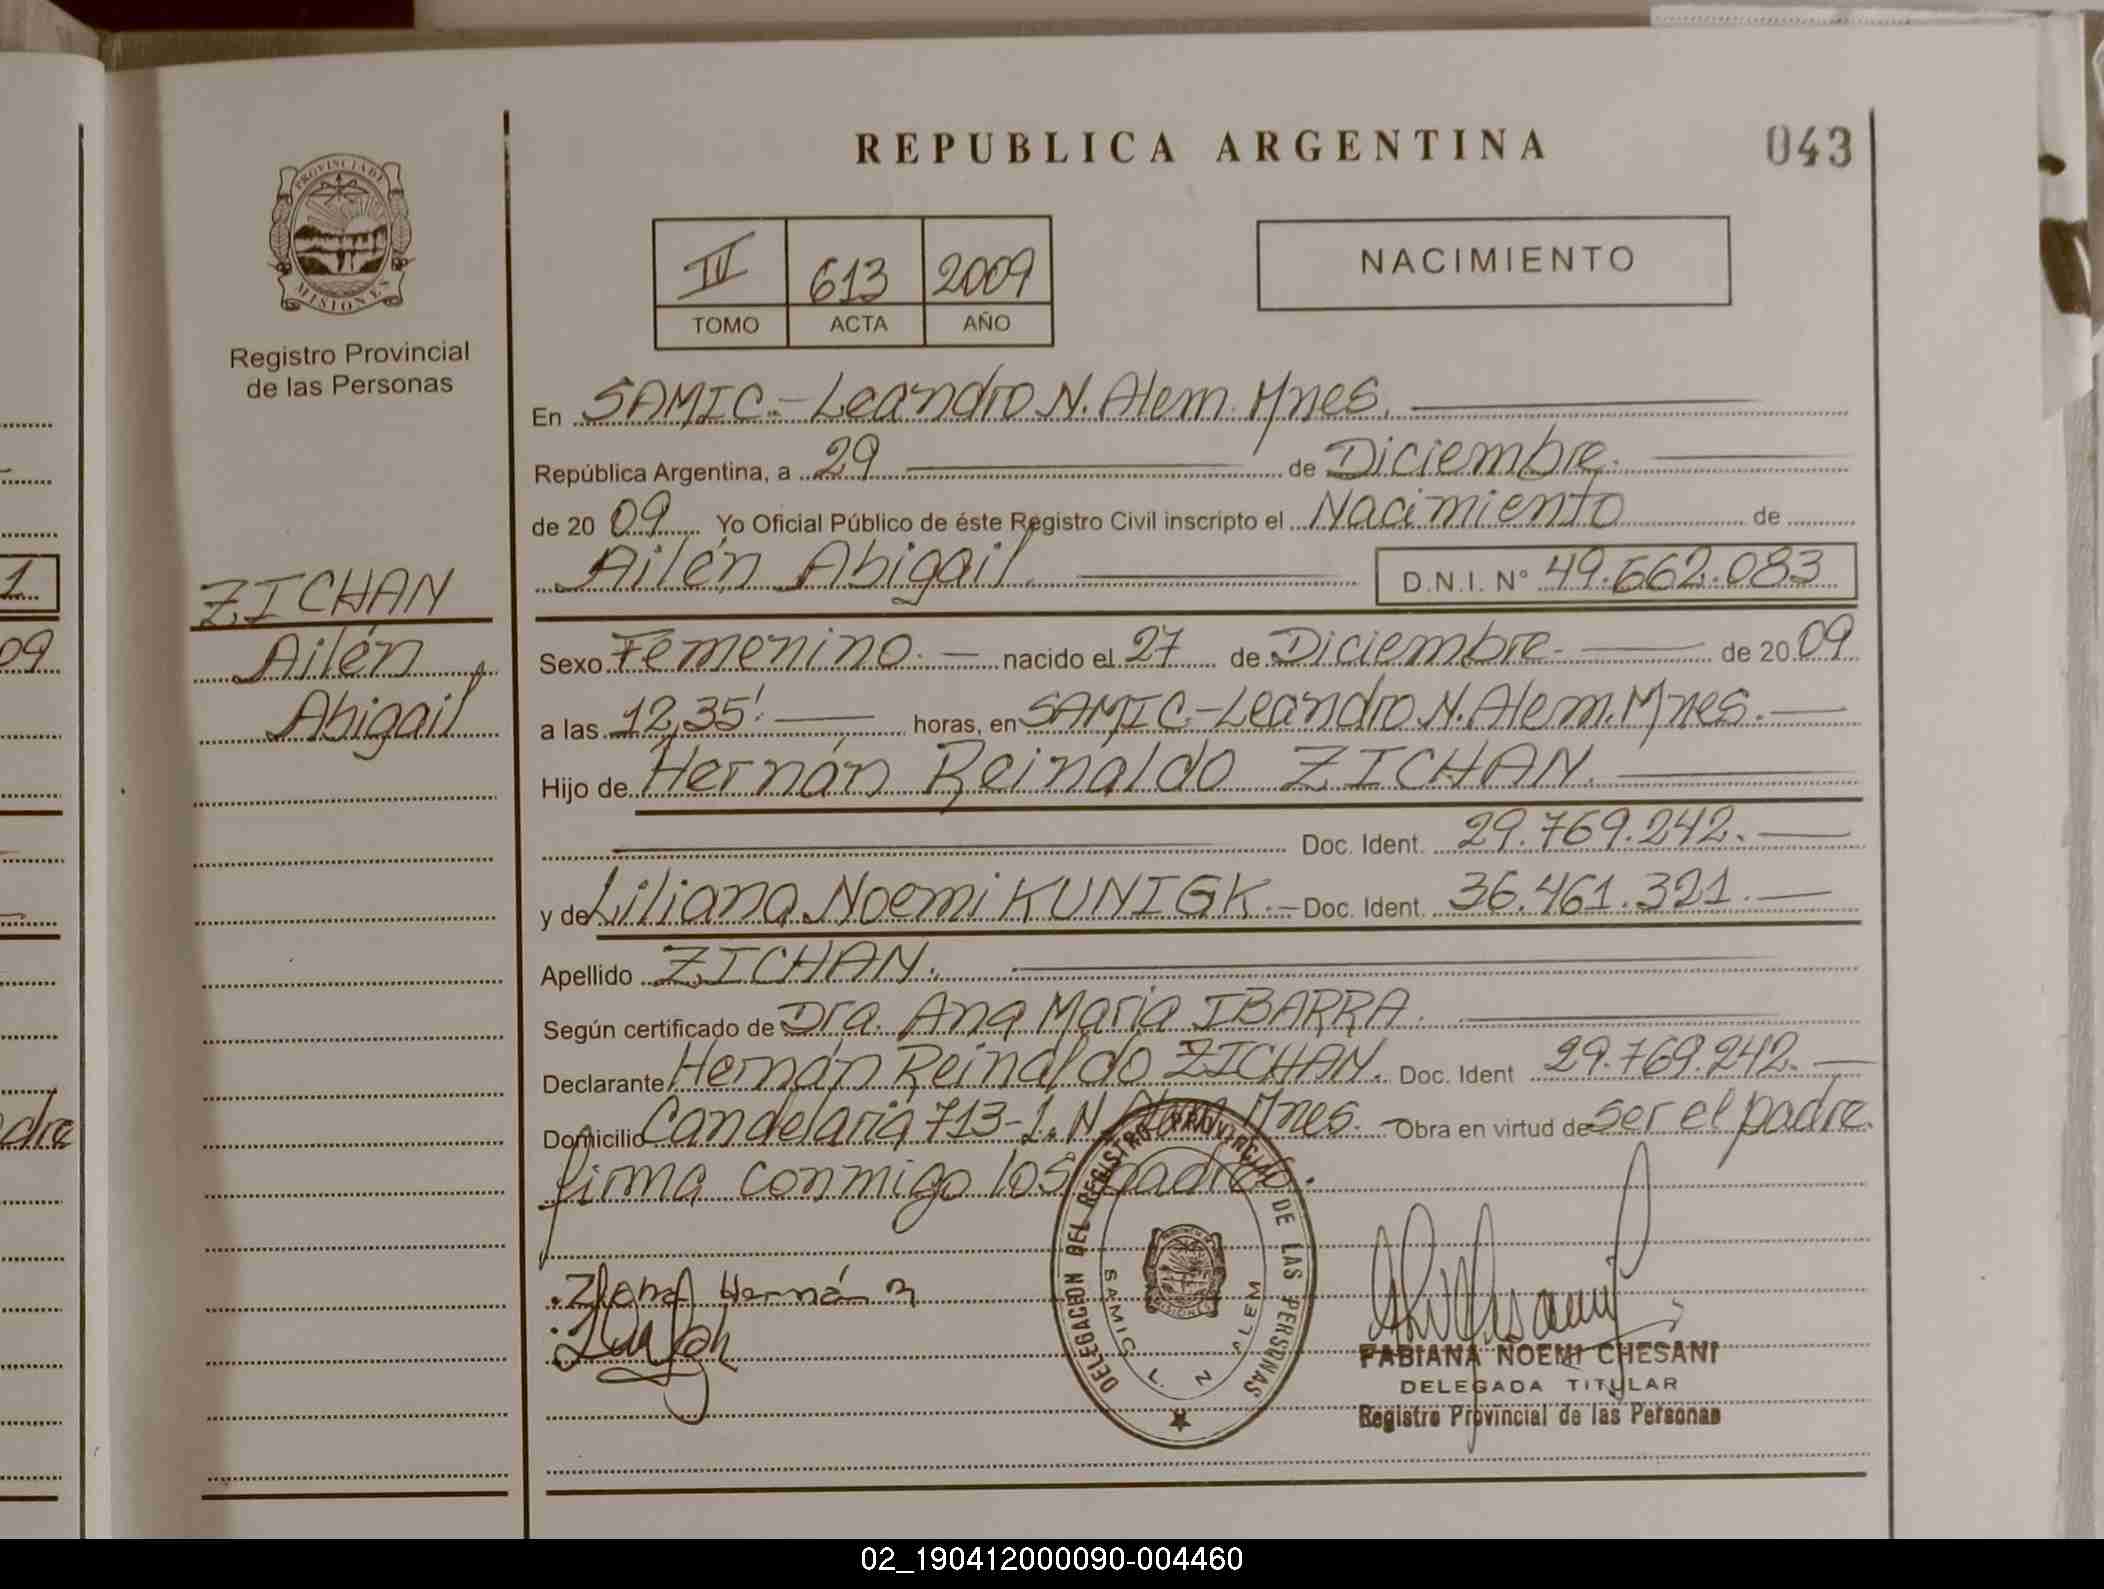 REPUBLICA ARGENTINA
043
PROVINCIA DE
MISIONES
Registro Provincial
de las Personas
IV 613 2009
TOMO ACTA AÑO
NACIMIENTO
En SAMIC.- Leandro N. Alem. Mnes.
República Argentina, a 29 de Diciembre.
de 20 09 Yo Oficial Público de éste Registro Civil inscripto el Nacimiento de
Ailén Abigail D.N.I. N° 49.662.083
ZICHAN
Ailén
Abigail
Sexo Femenino. nacido el 27 de Diciembre. de 20 09
a las 12,35'. horas, en SAMIC.-Leandro N. Alem. Mnes.
Hijo de Hernán Reinaldo ZICHAN.
Doc. Ident. 29.769.242.
y de Liliana Noemi KUNIGK.- Doc. Ident. 36.461.321.
Apellido ZICHAN.
Según certificado de Dra. Ana Maria IBARRA.
Declarante Hernán Reinaldo ZICHAN. Doc. Ident 29.769.242.
Domicilio Candelaria 713-L. N. Alem. Mnes. - Obra en virtud de ser el padre.
firma conmigo los padres.
Hernán
DELEGACION DEL REGISTRO PROVINCIAL DE LAS PERSONAS
SAMIC L. N. ALEM
FABIANA NOEMI CHESANI
DELEGADA TITULAR
Registro Provincial de las Personas
1
09
adre
02_190412000090-004460